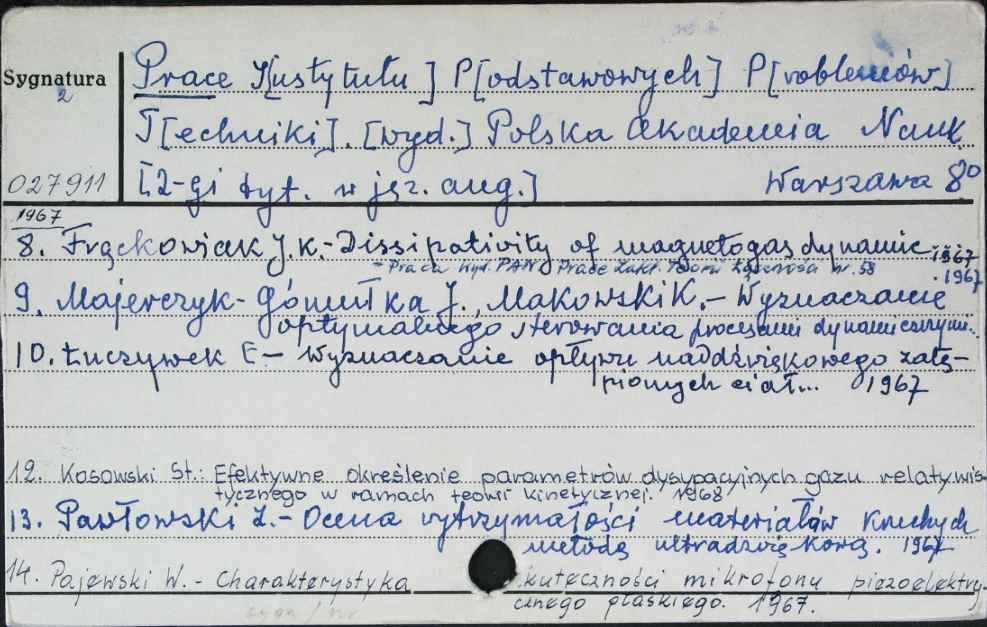 Sygnatura
2
027911
Prace I[nstytutu] P[odstawowych] P[roblemów]
T[echniki]. [wyd.] Polska Akademia Nauk
[2-gi tyt. w jęz. ang.] Warszawa 8°
1967
8. Frąckowiak J.K.- Dissipativity of magnetogasdynamic... 1967
- Praca wyd. PAN Prace Zakł. Teorii Łączności nr. 58
.1967
9. Majerczyk-Gómułka J., Makowski K.- Wyznaczanie
optymalnego sterowania procesami dynamicznymi.
10. Łuczywek E- Wyznaczanie opływu naddźwiękowego zatę-
pionych ciał... 1967
12. Kosowski St.: Efektywne określenie parametrów dysypacyjnych gazu relatywis-
tycznego w ramach teorii kinetycznej. 1968
13. Pawłowski Z.- Ocena wytrzymałości materiałów kruchych
metodą ultradźwiękową. 1967
14. Pajewski W.- Charakterystyka skuteczności mikrofonu piezoelektry-
cznego płaskiego. 1967.